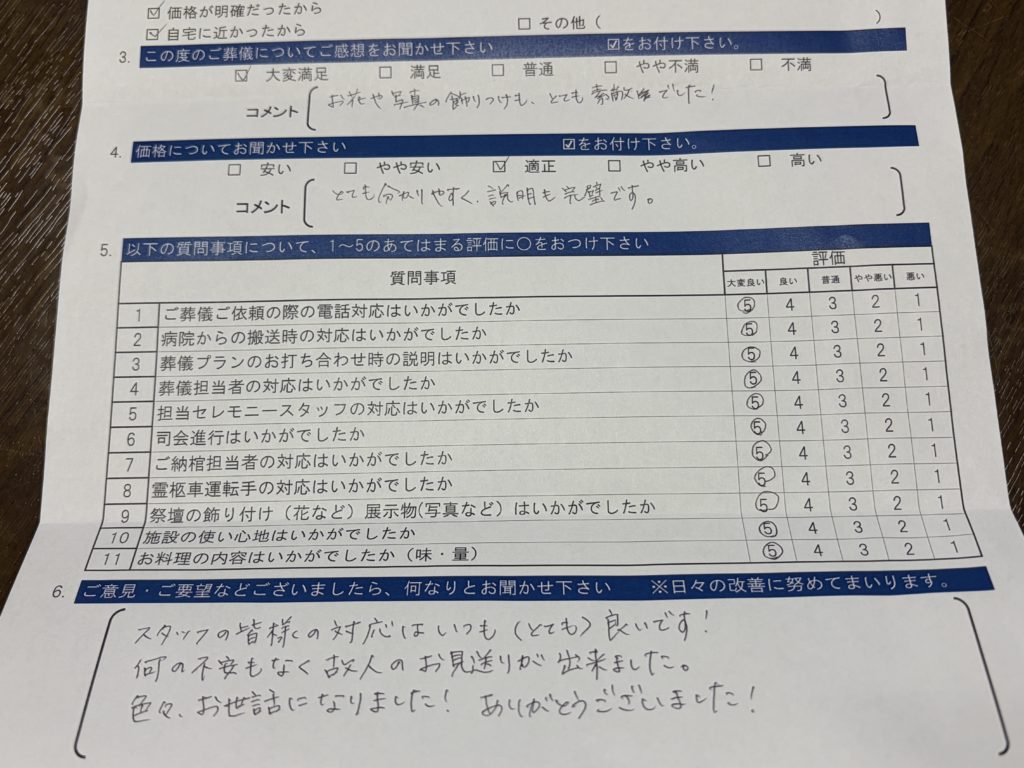 ☑ 価格が明確だったから
☑ 自宅に近かったから □ その他（ ）
3. この度のご葬儀についてご感想をお聞かせ下さい ☑をお付け下さい。
☑ 大変満足 □ 満足 □ 普通 □ やや不満 □ 不満
コメント お花や写真の飾りつけも、とても素敵でした！
4. 価格についてお聞かせ下さい ☑をお付け下さい。
□ 安い □ やや安い ☑ 適正 □ やや高い □ 高い
コメント とても分かりやすく、説明も完璧です。
5. 以下の質問事項について、1～5のあてはまる評価に○をおつけ下さい
質問事項 評価
大変良い 良い 普通 やや悪い 悪い
1 ご葬儀ご依頼の際の電話対応はいかがでしたか ⑤ 4 3 2 1
2 病院からの搬送時の対応はいかがでしたか ⑤ 4 3 2 1
3 葬儀プランのお打ち合わせ時の説明はいかがでしたか ⑤ 4 3 2 1
4 葬儀担当者の対応はいかがでしたか ⑤ 4 3 2 1
5 担当セレモニースタッフの対応はいかがでしたか ⑤ 4 3 2 1
6 司会進行はいかがでしたか ⑤ 4 3 2 1
7 ご納棺担当者の対応はいかがでしたか ⑤ 4 3 2 1
8 霊柩車運転手の対応はいかがでしたか ⑤ 4 3 2 1
9 祭壇の飾り付け（花など）展示物(写真など）はいかがでしたか ⑤ 4 3 2 1
10 施設の使い心地はいかがでしたか ⑤ 4 3 2 1
11 お料理の内容はいかがでしたか（味・量） ⑤ 4 3 2 1
6. ご意見・ご要望などございましたら、何なりとお聞かせ下さい ※日々の改善に努めてまいります。
スタッフの皆様の対応はいつも（とても）良いです！
何の不安もなく故人のお見送りが出来ました。
色々、お世話になりました！ ありがとうございました！